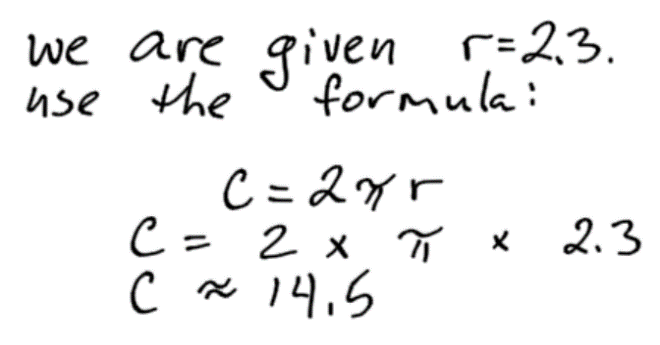 we are given r=2.3.
use the formula:
C = 2πr
C = 2 × π × 2.3
C ≈ 14.5